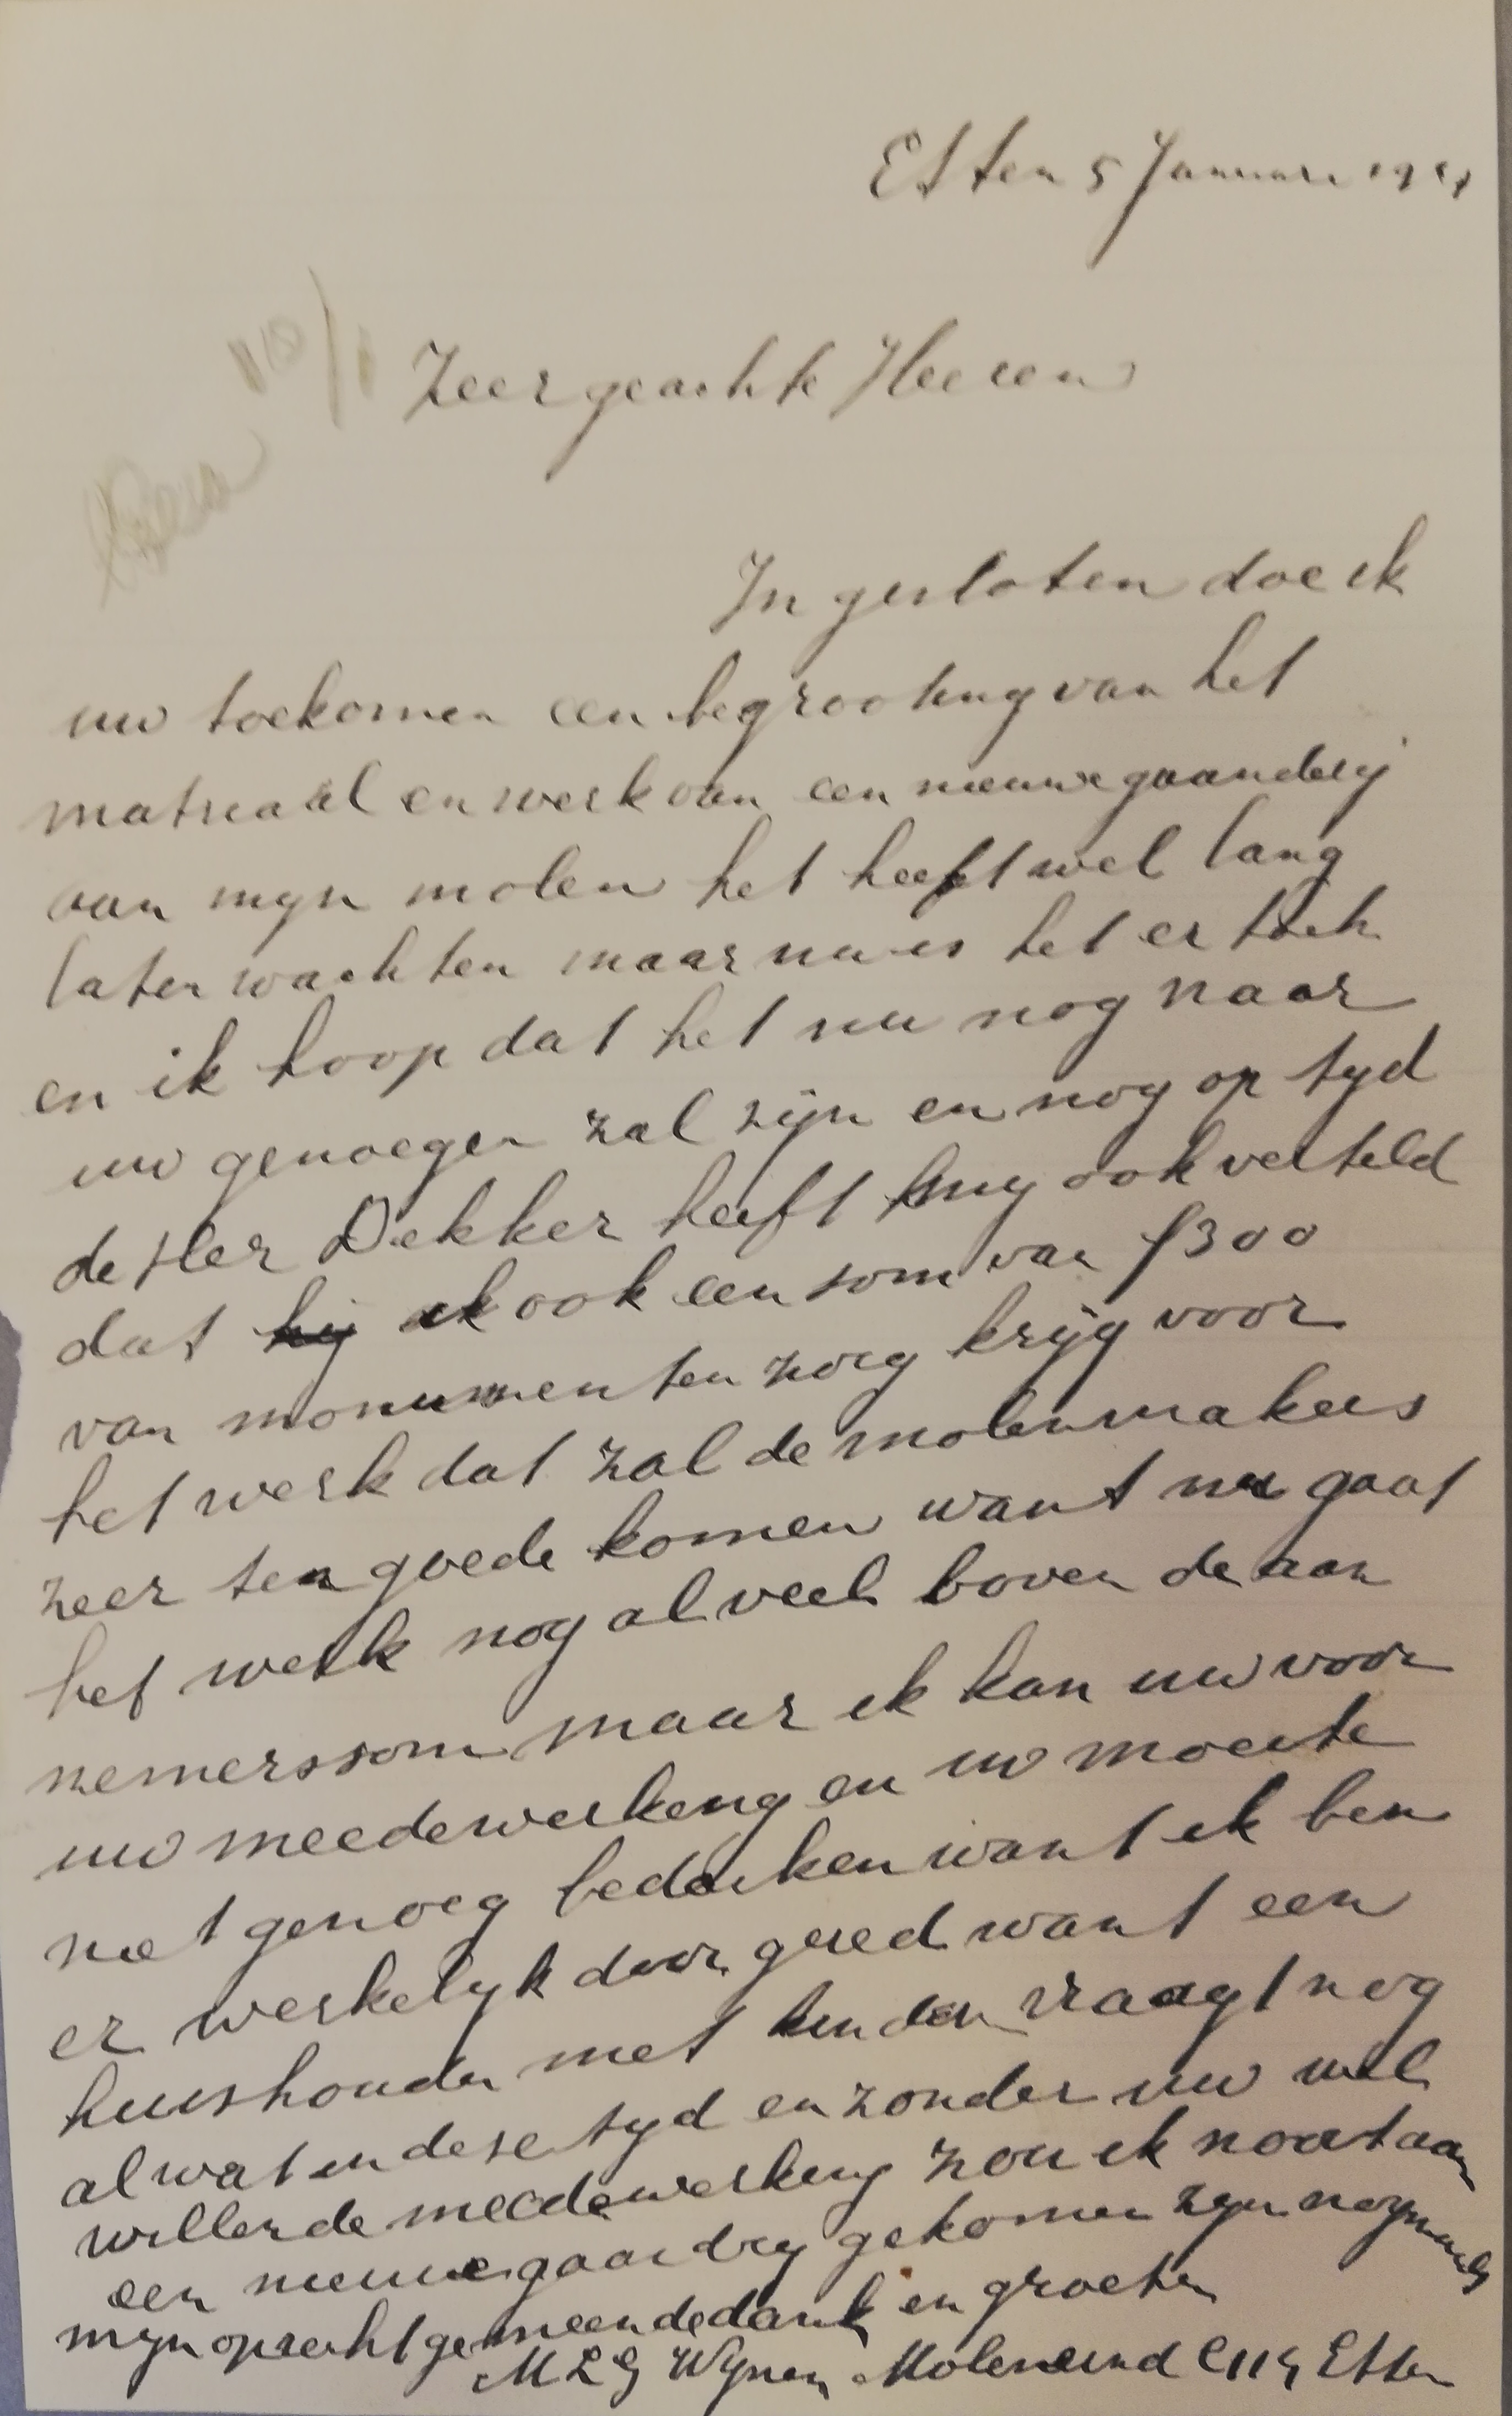 Etten 5 Januari 19
Zeer geachte Heeren
In gesloten doe ik
uw toekomen een begrooting van het
matriaal en werk van een nieuwe gaanderij
aan mijn molen het heeft wel lang
laten wachten maar nu is het er toch
en ik hoop dat het nu nog naar
uw genoegen zal zijn en nog op tyd
de Heer Dekker heeft my ook verteld
dat hij ik ook een som van f 300
van monumenten zorg krijg voor
het werk dat zal de molenmakers
zeer ten goede komen want nu gaat
het werk nog al veel boven de aan
nemerssom maar ik kan uw voor
uw meedewerkeng en uw moeite
niet genoeg bedanken want ik ben
er werkelyk door gered want een
huishouden met kinderen vraagt nog
al wat in dese tyd en zonder uw wel
willende meedewerking zou ik nooit aan
een nieuwe gaandrey gekomen zyn nogmaals
myn oprecht gemeende dank en groeten
M L G Wynen Moleneind C114 Etten